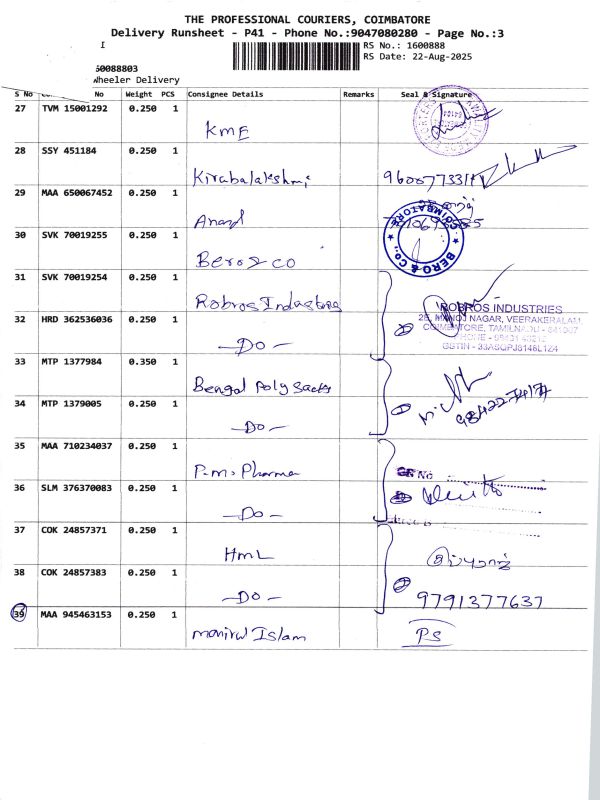 THE PROFESSIONAL COURIERS, COIMBATORE
Delivery Runsheet - P41 - Phone No.:9047080280 - Page No.:3
I
RS No.: 1600888
RS Date: 22-Aug-2025
60088803
Wheeler Delivery
S No No Weight PCS Consignee Details Remarks Seal & Signature
27 TVM 15001292 0.250 1
KME
28 SSY 451184 0.250 1
Kirabalakshmi
29 MAA 650067452 0.250 1
Anand
30 SVK 70019255 0.250 1
Beros & co
BERO & CO.
COIMBATORE
31 SVK 70019254 0.250 1
Robros Industries
ROBROS INDUSTRIES
MANOJ NAGAR, VEERAKERALAM,
COIMBATORE, TAMILNADU - 641007
32 HRD 362536036 0.250 1
-DO-
33 MTP 1377984 0.350 1
Bengal Poly Sacks
34 MTP 1379005 0.250 1
-DO-
35 MAA 710234037 0.250 1
P.M. Pharma
36 SLM 376370083 0.250 1
-DO-
37 COK 24857371 0.250 1
HML
38 COK 24857383 0.250 1
-DO-
9791377637
39 MAA 945463153 0.250 1
Monirul Islam
PS